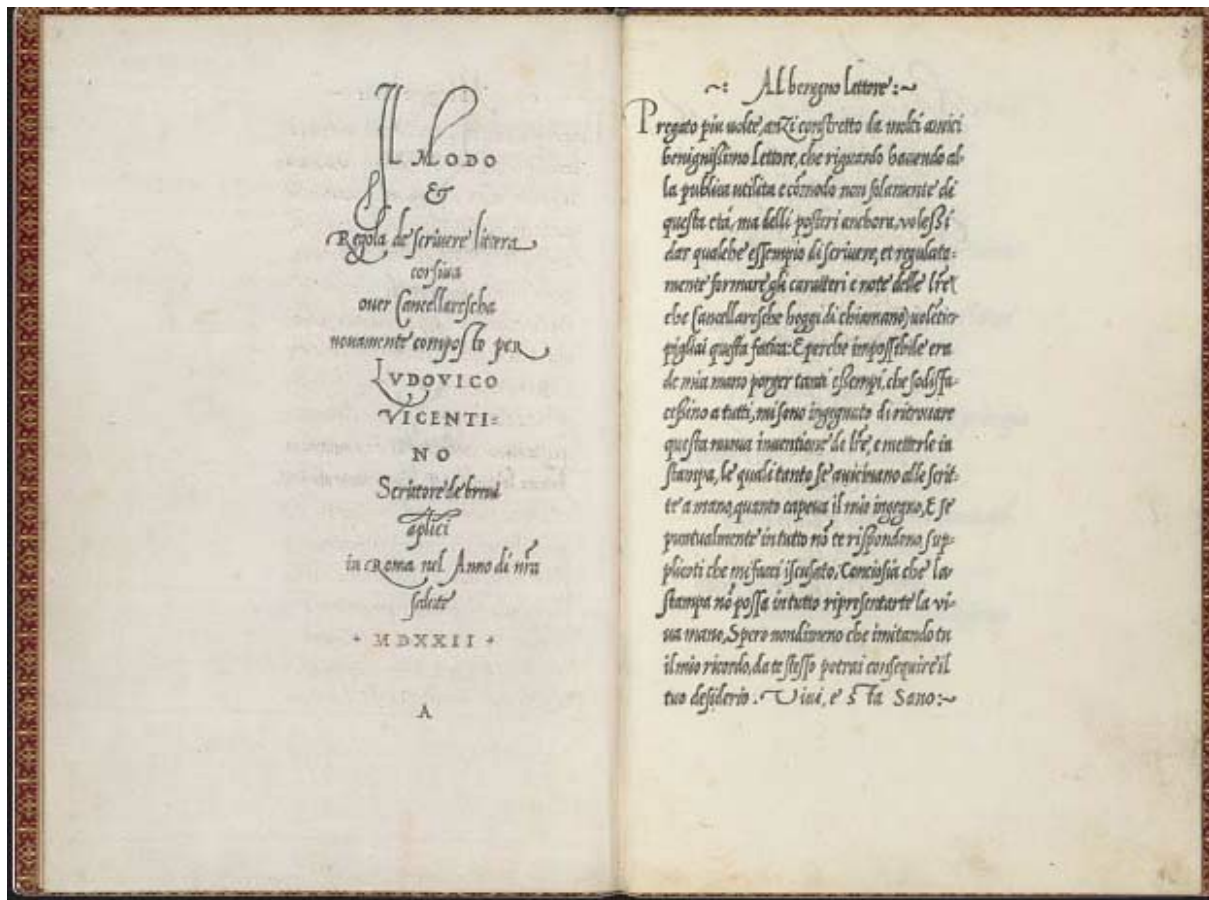 Il MODO
&
Regola de scriuere littera
corsiua
ouer Cancellarescha
nouamente composto per
LVDOVICO
VICENTI=
NO
Scrittore de breui
aplici
in Roma nel Anno di nr̃a
salute
+ MDXXII +
A
~: Al benigno lettore :~
Pregato piu uolte, anzi constretto da molti amici
benignissimo Lettore, che riguardo hauendo al-
la publica utilita e cõmodo non solamente di
questa età, ma delli posteri anchora, volessi
dar qualche essempio di scriuere, et regulata-
mente formare gli caratteri e note delle lr̃e (
che Cancellaresche hoggi di chiamano) uoletier
pigliai questa fatica: E perche impossibile era
de mia mano porger tanti essempi, che sodisfa-
cessino a tutti, mi sono ingegnato di ritrouare
questa nuoua inuentione de lr̃e, e metterle in
stampa, le quali tanto se auicinano alle scrit-
te a mano, quanto capeua il mio ingegno, E se
puntualmente in tutto nõ te rispondono, sup-
plicoti che mi facci iscusato, Conciosia che la
stampa nõ possa in tutto ripresentarte la vi-
ua mano, Spero nondimeno che imitando tu
il mio ricordo, da te stesso potrai consequire il
tuo desiderio. Viui, e Sta Sano:~